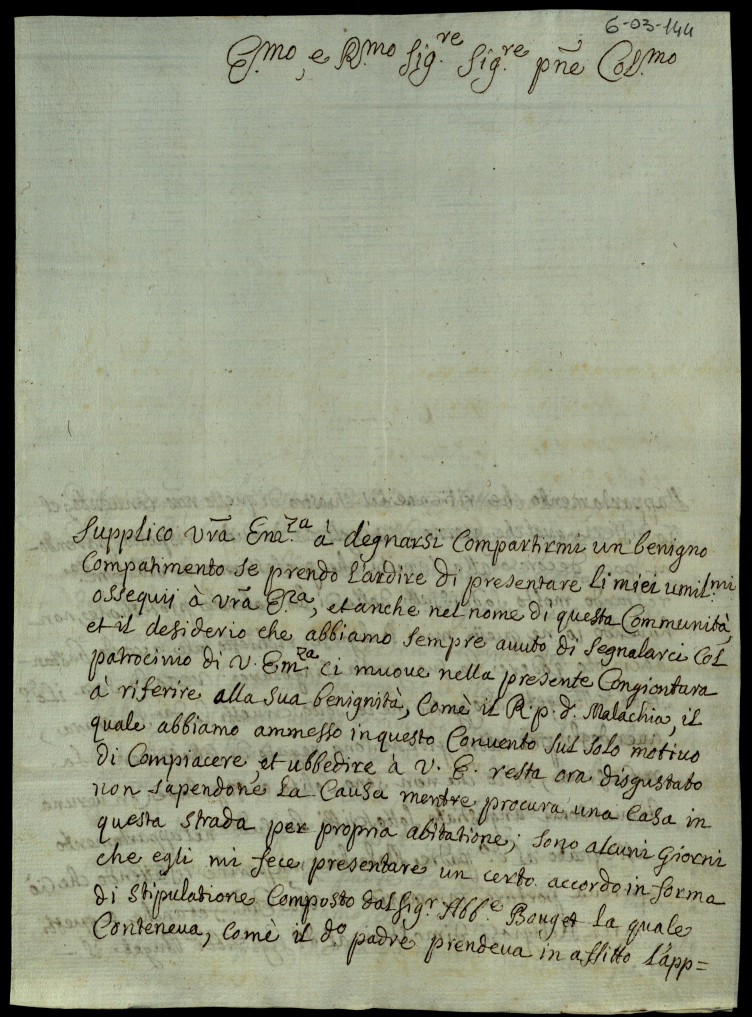 6-03-144
E.mo, e R.mo Sig.re Sig.re pñe Col.mo
Supplico vr̃a Emã.za à degnarsi Compartirmi un benigno
Compatimento se prendo l'ardire di presentare li miei umil.mi
ossequij à vr̃a E.za, et anche nel nome di questa Communità,
et il desiderio che abbiamo sempre auuto di segnalarci Col
patrocinio di v. Em.za ci muove nella presente Congiontura
à riferire alla sua benignità, Comè il R. p. d. Malachia, il
quale abbiamo ammesso in questo Convento sul solo motiuo
di Compiacere, et ubbedire à v. E. resta ora disgustato
non sapendone la Causa mentre procura una Casa in
questa strada per propria abitatione; sono alcuni Giorni
che egli mi fece presentare un certo accordo in forma
di stipulatione Composto dal Sig.r Abb.e Bouget la quale
Conteneva, comè il d.o padre prendeva in affitto l'app=